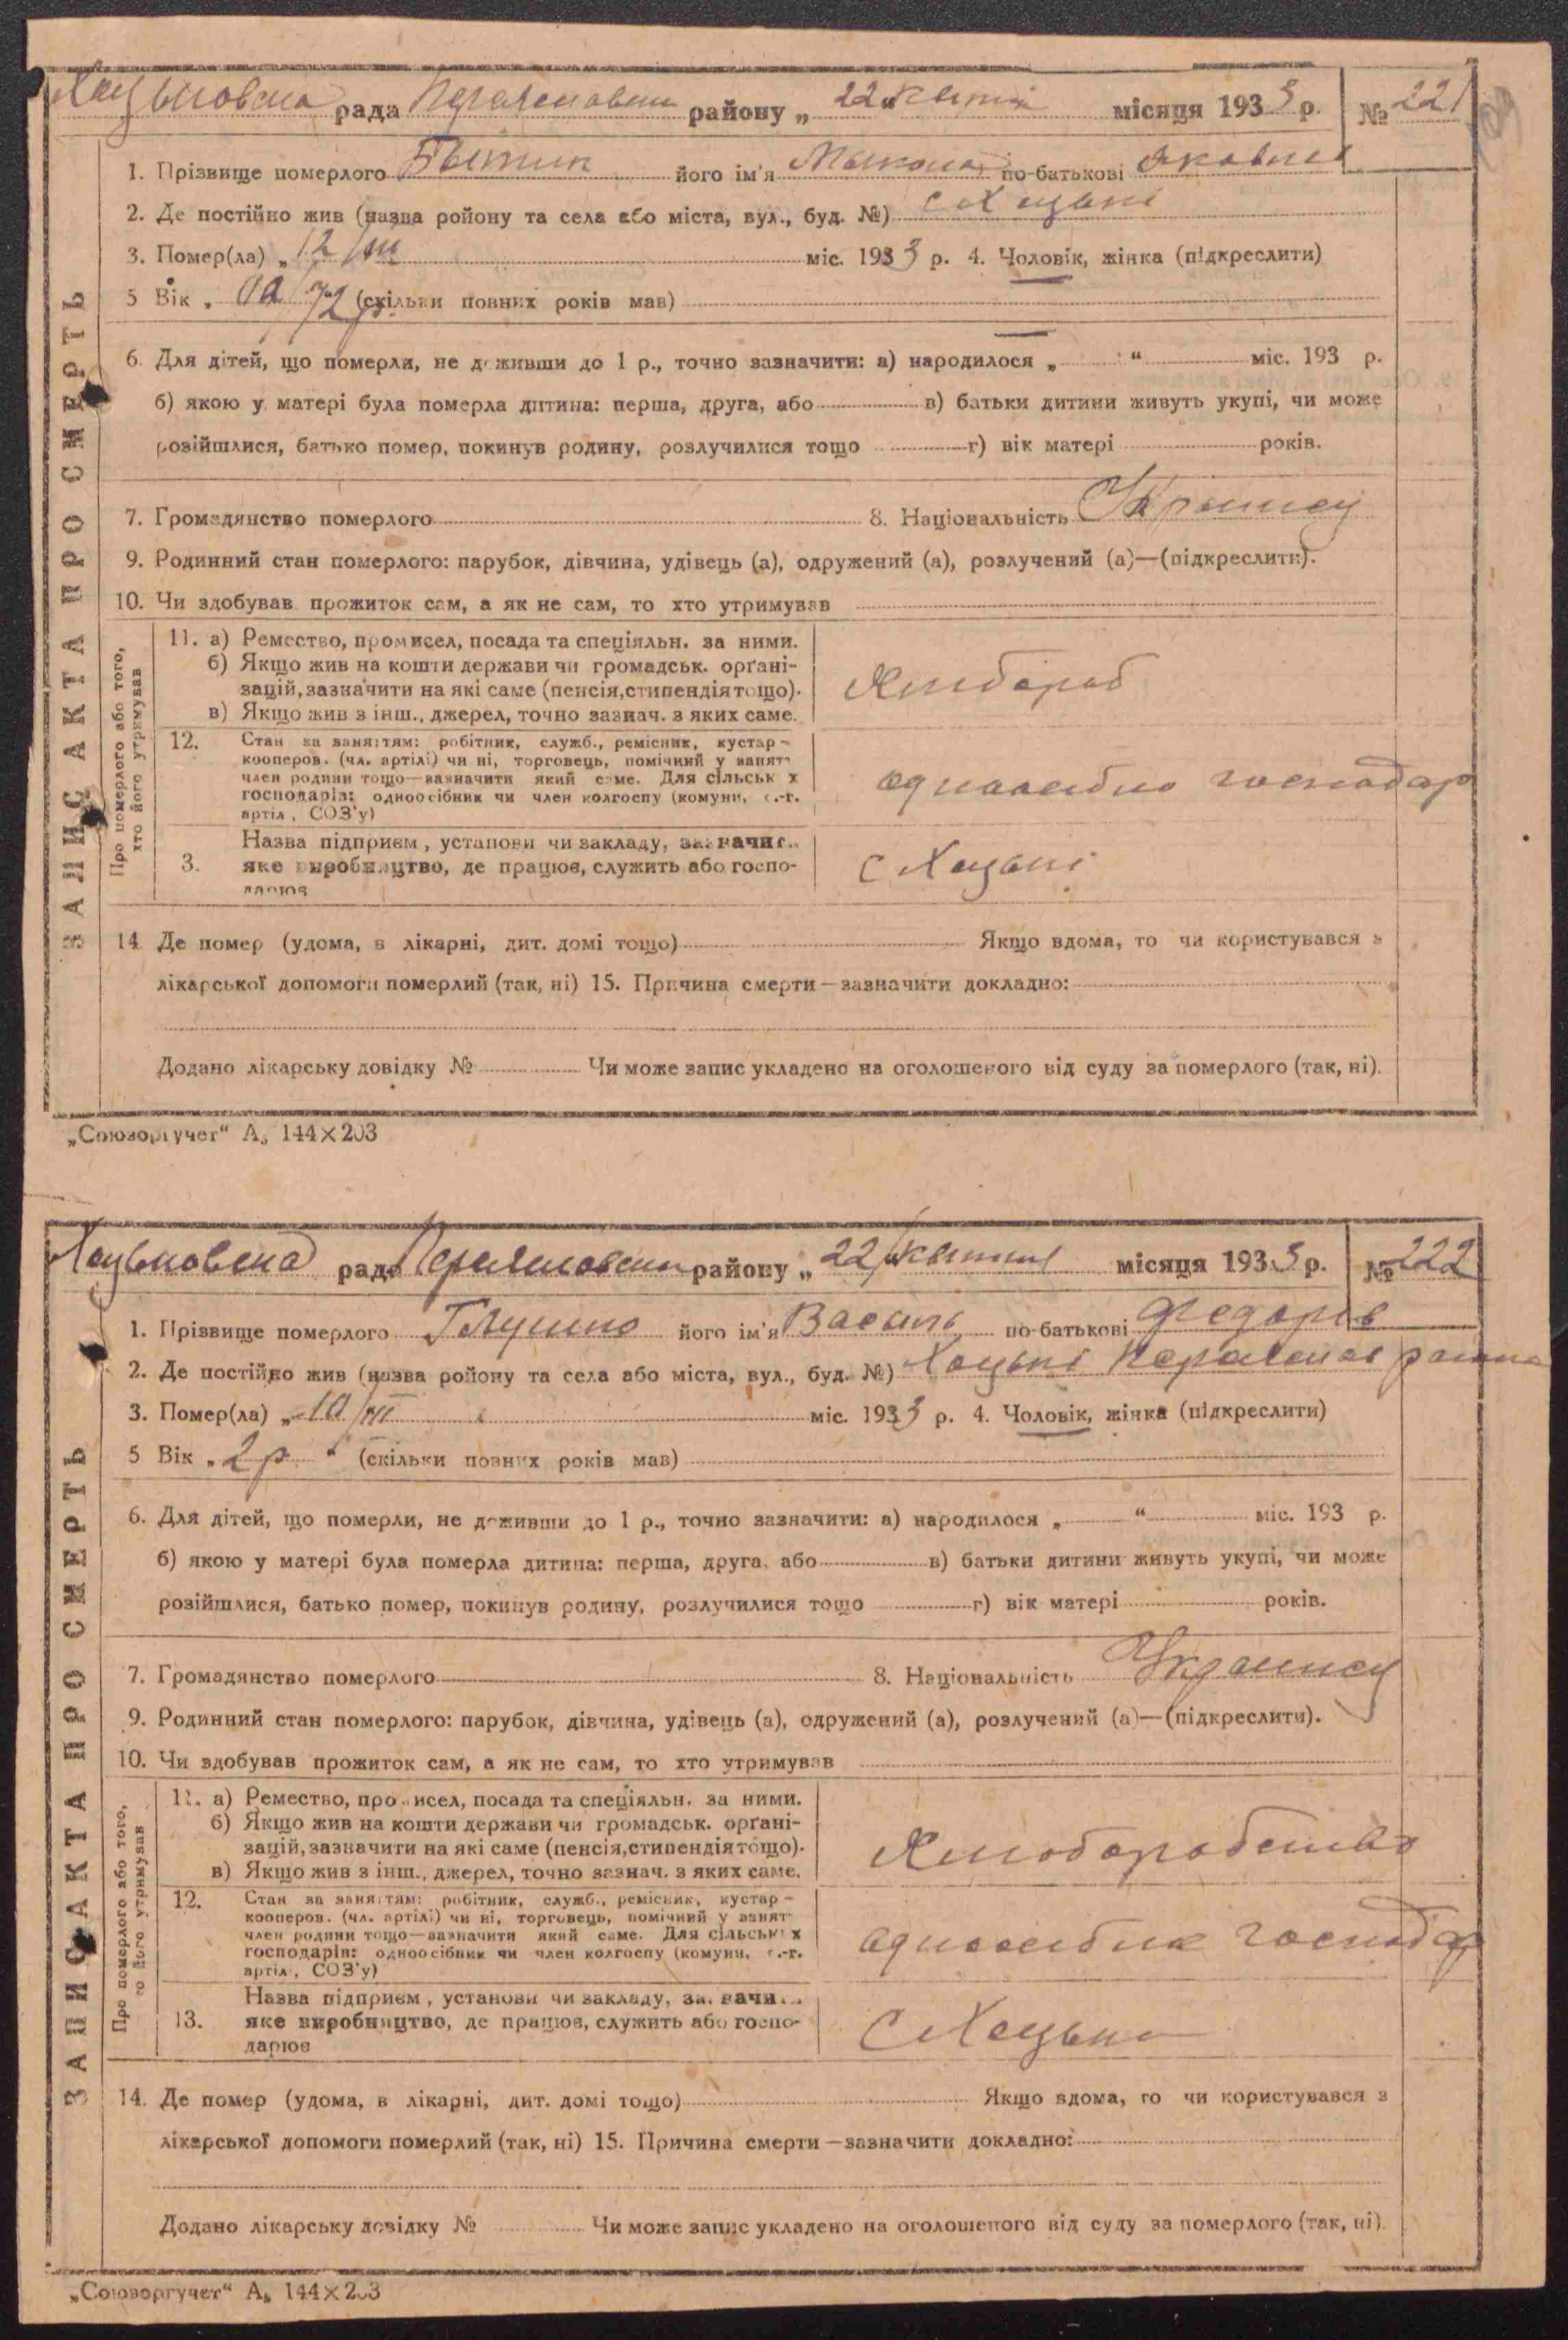 Хоцьковска рада Переяславськ району „ 22 " квітня місяця 1933 р. № 221
1. Прізвище померлого його ім'я Мыкола по-батькові Якович
2. Де постійно жив (назва ройону та села або міста, вул., буд. №) с Хоцькі
3. Помер(ла) „ 12/III міс. 1933 р. 4. Чоловік, жінка (підкреслити)
5 Вік „ 72 р. (скільки повних років мав)
6. Для дітей, що померли, не доживши до 1 р., точно зазначити: а) народилося „ “ міс. 193 р.
б) якою у матері була померла дитина: перша, друга, або в) батьки дитини живуть укупі, чи може
розійшлися, батько помер, покинув родину, розлучилися тощо г) вік матері років.
7. Громадянство померлого 8. Національність Українец
9. Родинний стан померлого: парубок, дівчина, удівець (а), одружений (а), розлучений (а)—(підкреслити).
10. Чи здобував прожиток сам, а як не сам, то хто утримував
ЗАПИС АКТА ПРО СМЕРТЬ
Про померлого або того, хто його утримував
11. а) Ремество, промисел, посада та спеціяльн. за ними.
б) Якщо жив на кошти держави чи громадськ. орґані-
зацій, зазначити на які саме (пенсія, стипендія тощо).
в) Якщо жив з інш., джерел, точно зазнач. з яких саме.
Хлібороб
12. Стан за заняттям: робітник, служб., ремісник, кустар -
кооперов. (чл. артілі) чи ні, торговець, помічний у занятт
член родини тощо—зазначити який саме. Для сільськ х
господарів: одноосібник чи член колгоспу (комуни, с.-г.
артіл , СОЗ'у)
господар
3. Назва підприєм , установи чи закладу, зазначит
яке виробництво, де працює, служить або госпо-
дарює
с Хоцькі
14 Де помер (удома, в лікарні, дит. домі тощо) Якщо вдома, то чи користувався з
лікарської допомоги померлий (так, ні) 15. Причина смерти—зазначити докладно:
Додано лікарську довідку № Чи може запис укладено на оголошеного від суду за померлого (так, ні).
„Союзоргучет“ А₅ 144×203
Хоцьковска рада Переяславськ району „ 22 " квітня місяця 1933 р. № 222
1. Прізвище померлого Глушко його ім'я Василь по-батькові Федоров
2. Де постійно жив (назва ройону та села або міста, вул., буд. №) Хоцькі
3. Помер(ла) „ 10/III міс. 1933 р. 4. Чоловік, жінка (підкреслити)
5 Вік „ 2 р. “ (скільки повних років мав)
6. Для дітей, що померли, не доживши до 1 р., точно зазначити: а) народилося „ “ міс. 193 р.
б) якою у матері була померла дитина: перша, друга, або в) батьки дитини живуть укупі, чи може
розійшлися, батько помер, покинув родину, розлучилися тощо г) вік матері років.
7. Громадянство померлого 8. Національність Українец
9. Родинний стан померлого: парубок, дівчина, удівець (а), одружений (а), розлучений (а)—(підкреслити).
10. Чи здобував прожиток сам, а як не сам, то хто утримував
ЗАПИС АКТА ПРО СМЕРТЬ
Про померлого або того, го його утримував
11. а) Ремество, промисел, посада та спеціяльн. за ними.
б) Якщо жив на кошти держави чи громадськ. орґані-
зацій, зазначити на які саме (пенсія, стипендія тощо).
в) Якщо жив з інш., джерел, точно зазнач. з яких саме.
Хлиборобство
12. Стан за заняттям: робітник, служб., ремісник, кустар -
кооперов. (чл. артілі) чи ні, торговець, помічний у занят
член родини тощо—зазначити який саме. Для сільськ х
господарів: одноосібник чи член колгоспу (комуни, с.-г.
артіл , СОЗ'у)
господар
13. Назва підприєм , установи чи закладу, зазначи
яке виробництво, де працює, служить або госпо-
дарює
с Хоцьки
14. Де помер (удома, в лікарні, дит. домі тощо) Якщо вдома, го чи користувався з
лікарської допомоги померлий (так, ні) 15. Причина смерти—зазначити докладно:
Додано лікарську довідку № Чи може запис укладено на оголошеного від суду за померлого (так, ні).
„Союзоргучет“ А₅ 144×203